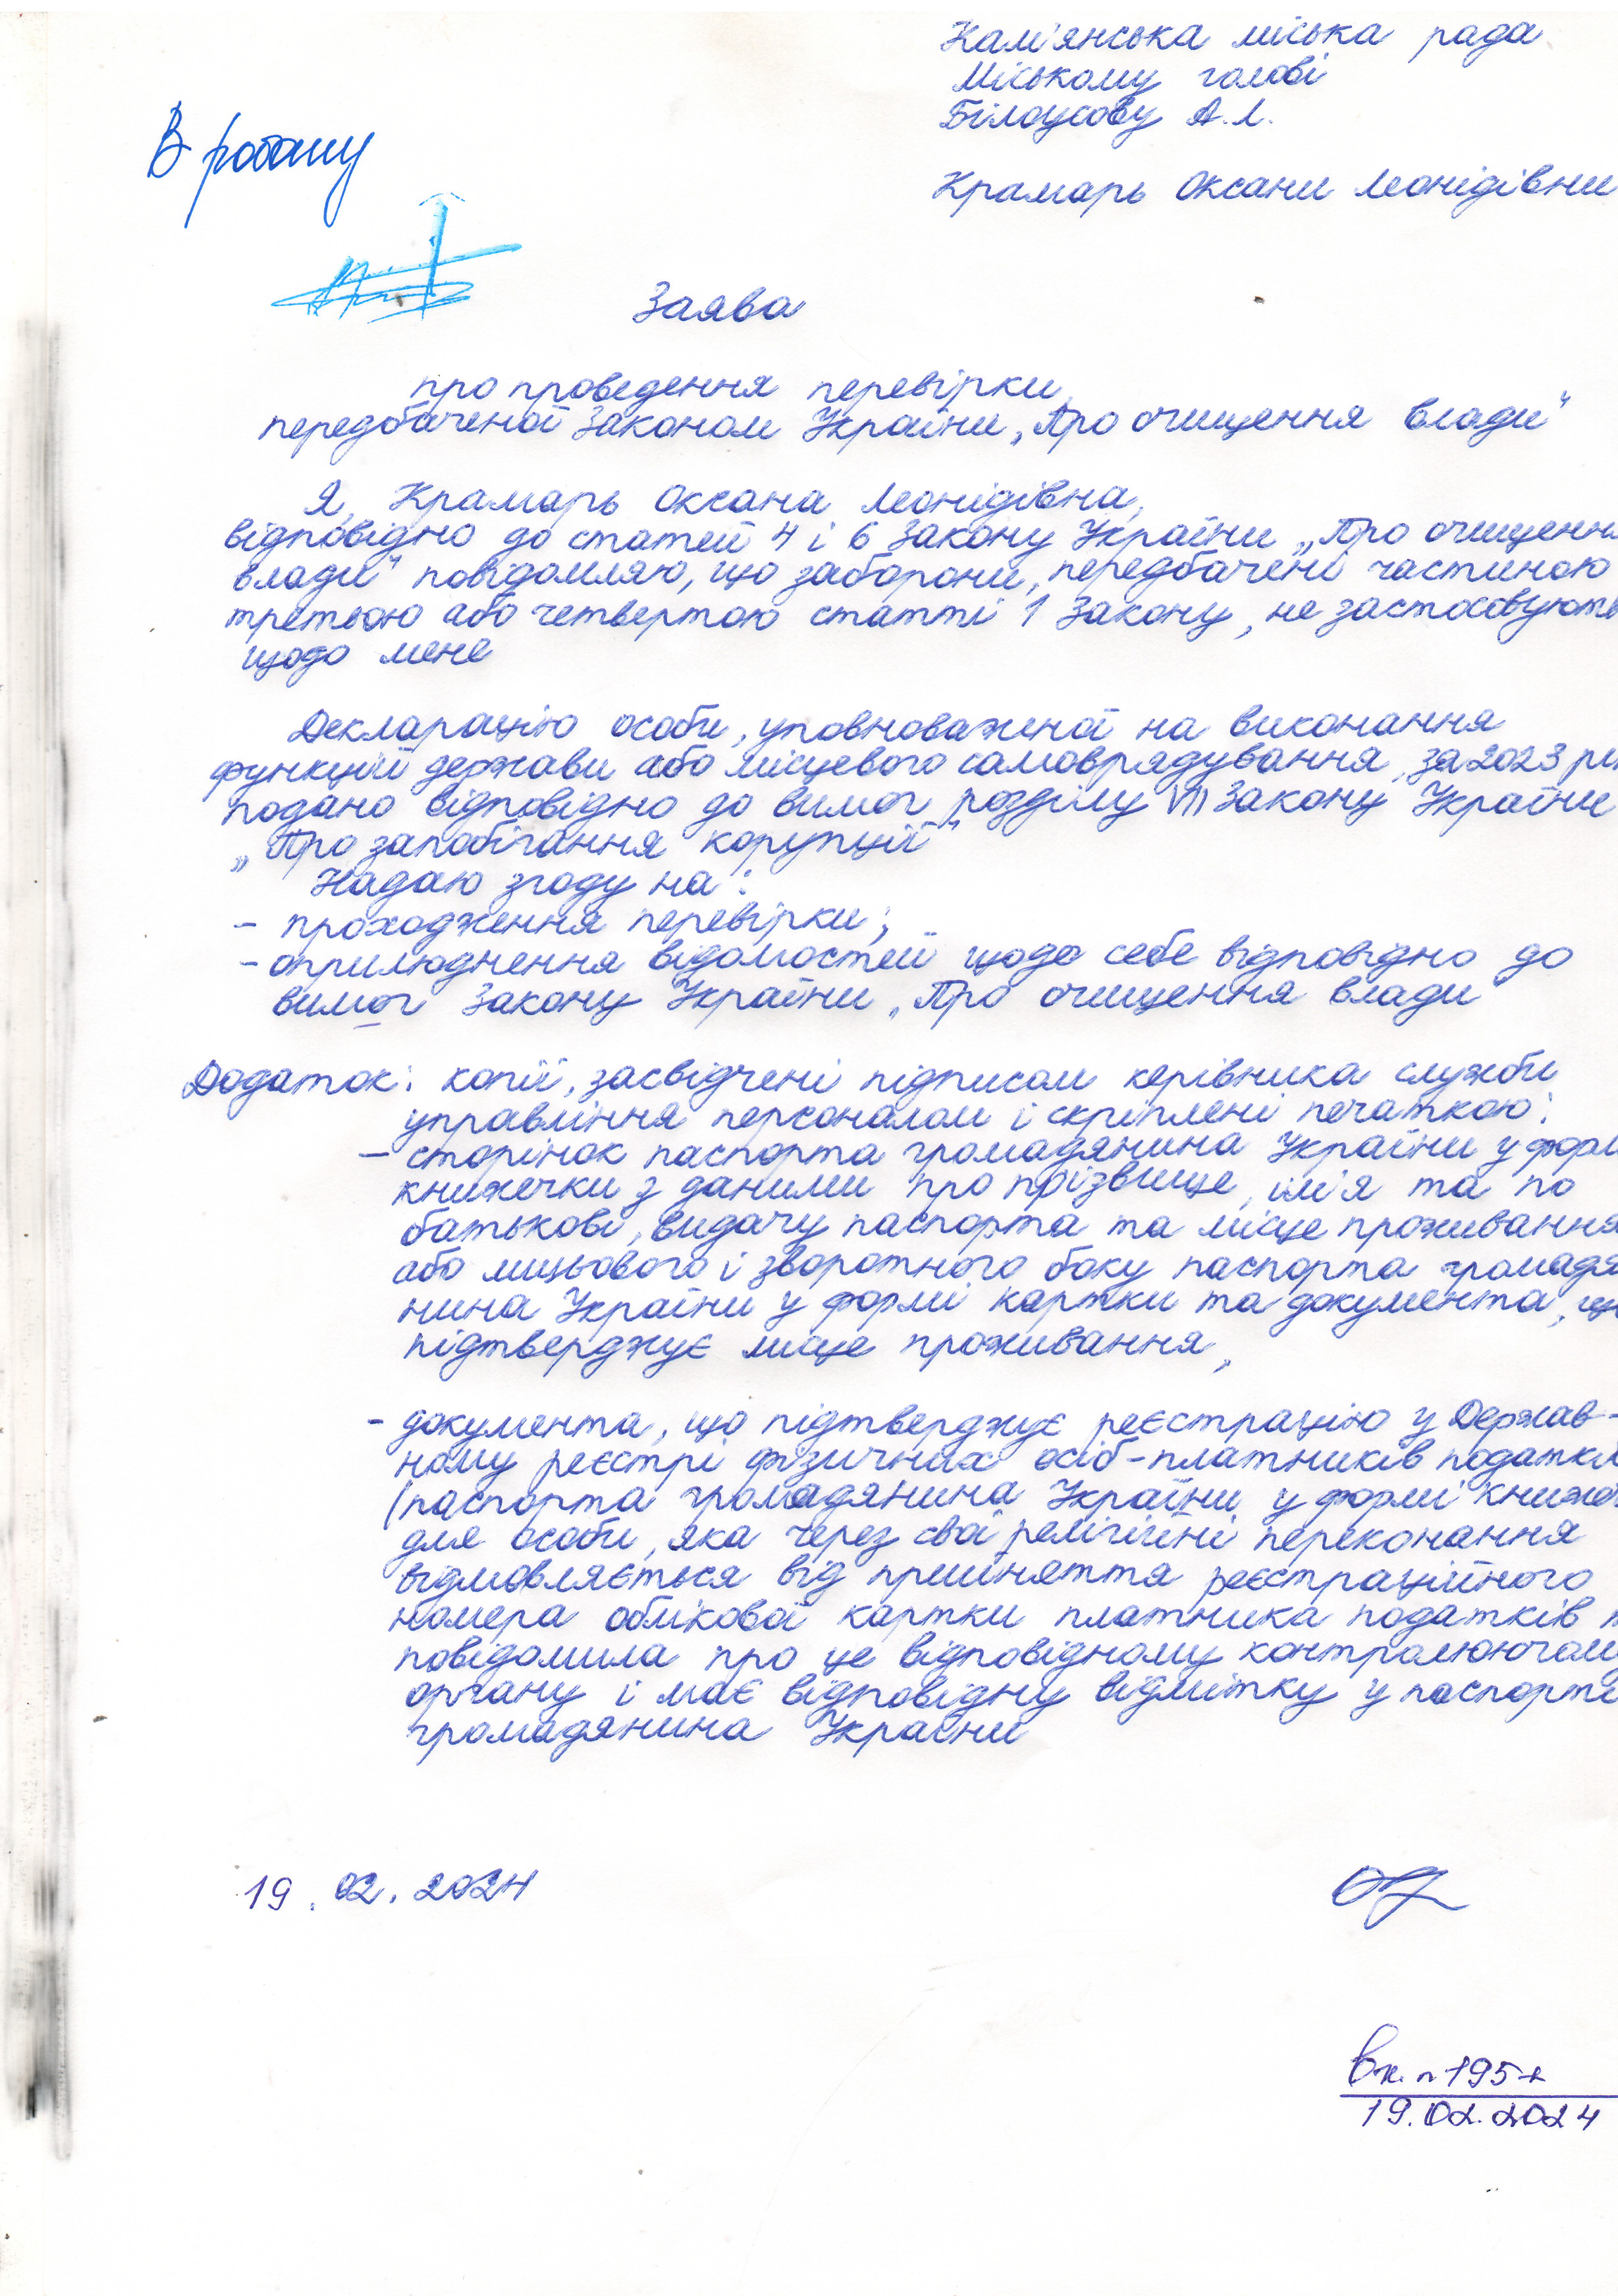 Кам'янська міська рада
Міському голові
Білоусову А.Л.
В роботу
Крамарь Оксани Леонідівни
Заява
про проведення перевірки,
передбаченої Законом України „Про очищення влади"
Я, Крамарь Оксана Леонідівна,
відповідно до статей 4 і 6 Закону України „Про очищення
влади" повідомляю, що заборони, передбачені частиною
третьою або четвертою статті 1 Закону, не застосовують
щодо мене
Декларацію особи, уповноваженої на виконання
функцій держави або місцевого самоврядування, за 2023 рік
подано відповідно до вимог розділу VII Закону України
„Про запобігання корупції"
Надаю згоду на:
- проходження перевірки;
- оприлюднення відомостей щодо себе відповідно до
вимог Закону України „Про очищення влади"
Додаток: копії, засвідчені підписом керівника служби
управління персоналом і скріплені печаткою:
- сторінок паспорта громадянина України у форм
книжечки з даними про прізвище, ім'я та по
батькові, видачу паспорта та місце проживання
або лицьового і зворотного боку паспорта громадя
нина України у формі картки та документа, що
підтверджує місце проживання,
- документа, що підтверджує реєстрацію у Держав-
ному реєстрі фізичних осіб-платників податків
(паспорта громадянина України у формі книжеч
для особи, яка через свої релігійні переконання
відмовляється від прийняття реєстраційного
номера облікової картки платника податків т
повідомила про це відповідному контролюючому
органу і має відповідну відмітку у паспорті
громадянина України
19.02.2024
19.02.2024